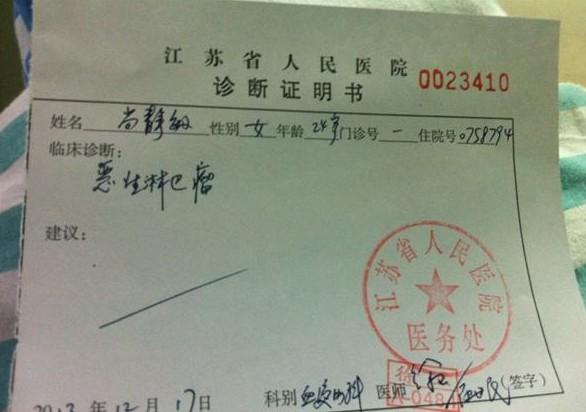 江苏省人民医院
诊断证明书 0023410
姓名 尚静敏 性别 女 年龄 24岁 门诊号 一 住院号 0758794
临床诊断：
恶性淋巴瘤
建议：
江苏省人民医院
医务处
048
科别 血液内科 医师 (签字)
2013 年 12 月 17 日